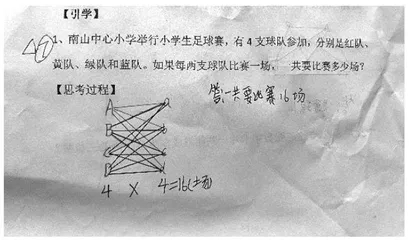 【引学】
1、南山中心小学举行小学生足球赛，有4支球队参加，分别是红队、
黄队、绿队和蓝队。如果每两支球队比赛一场，一共要比赛多少场？
【思考过程】
答:一共要比赛16场
A
B
C
D
4 × 4=16(场)